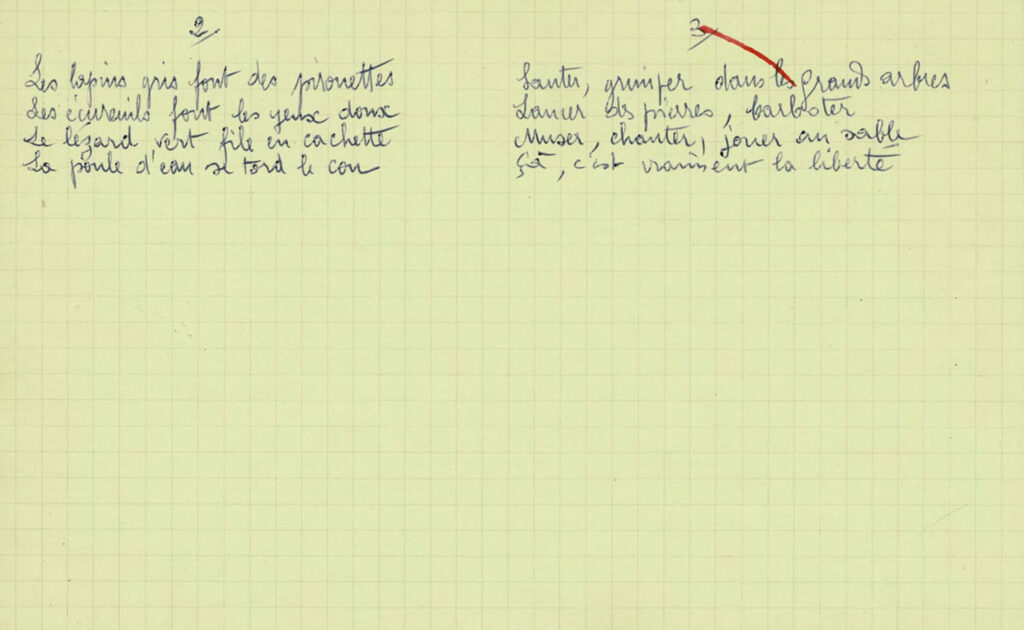 2
Les lapins gris font des pirouettes
Les écureuils font les yeux doux
Le lézard vert file en cachette
La poule d'eau se tord le cou
3
Sauter, grimper dans les grands arbres
Lancer des pierres, barboter
Muser, chanter, jouer au sable
Çà, c'est vraiment la liberté